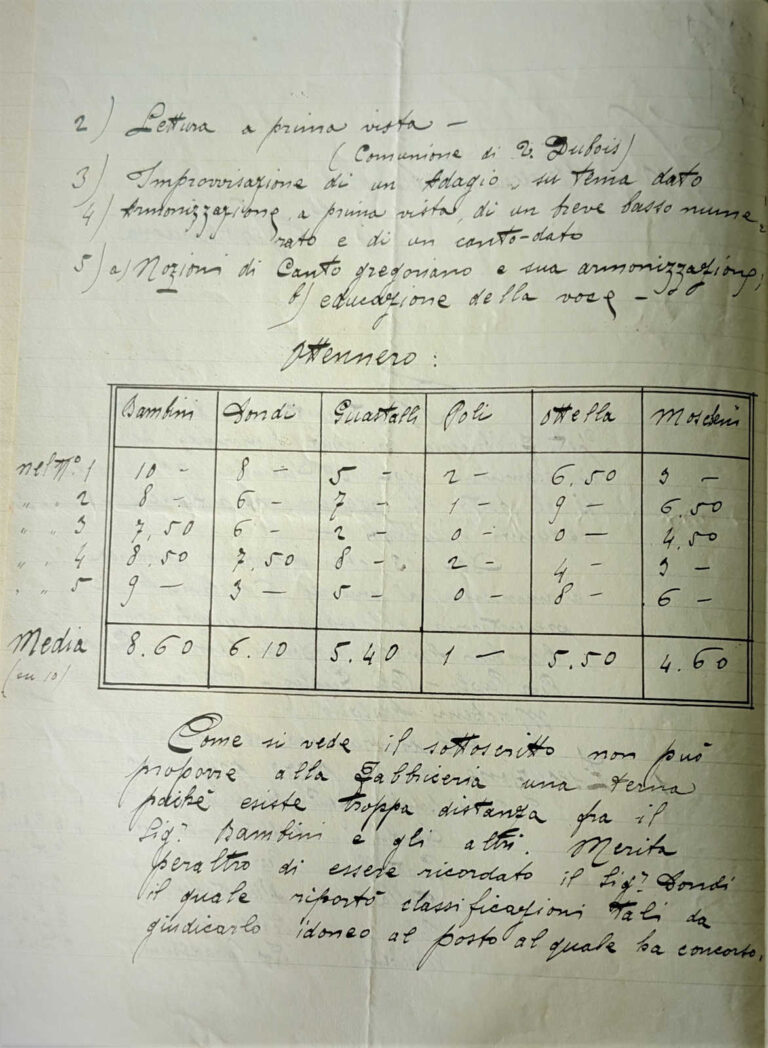 2) Lettura a prima vista —
( Comunione di T. Dubois)
3) Improvvisazione di un Adagio, su tema dato
4) Armonizzazione, a prima vista, di un breve basso nume-
rato e di un canto-dato
5) a) Nozioni di Canto gregoriano e sua armonizzazione;
b) educazione della voce —
Ottennero :
Bambini Dondi Guastalli Poli Ottella Moscheni
nel N.º 1 10 — 8 — 5 — 2 — 6.50 3 —
" " 2 8 — 6 — 7 — 1 — 9 — 6.50
" " 3 7,50 6 — 2 — 0 — 0 — 4.50
" " 4 8.50 7,50 8 — 2 — 4 — 3 —
" " 5 9 — 3 — 5 — 0 — 8 — 6 —
Media 8.60 6.10 5.40 1 — 5.50 4.60
(su 10)
Come si vede il sottoscritto non può
proporre alla Fabbiceria una terna
poichè esiste troppa distanza fra il
Sig.r Bambini e gli altri. Merita
peraltro di essere ricordato il Sig.r Dondi
il quale riportò classificazioni tali da
giudicarlo idoneo al posto al quale ha concorso.